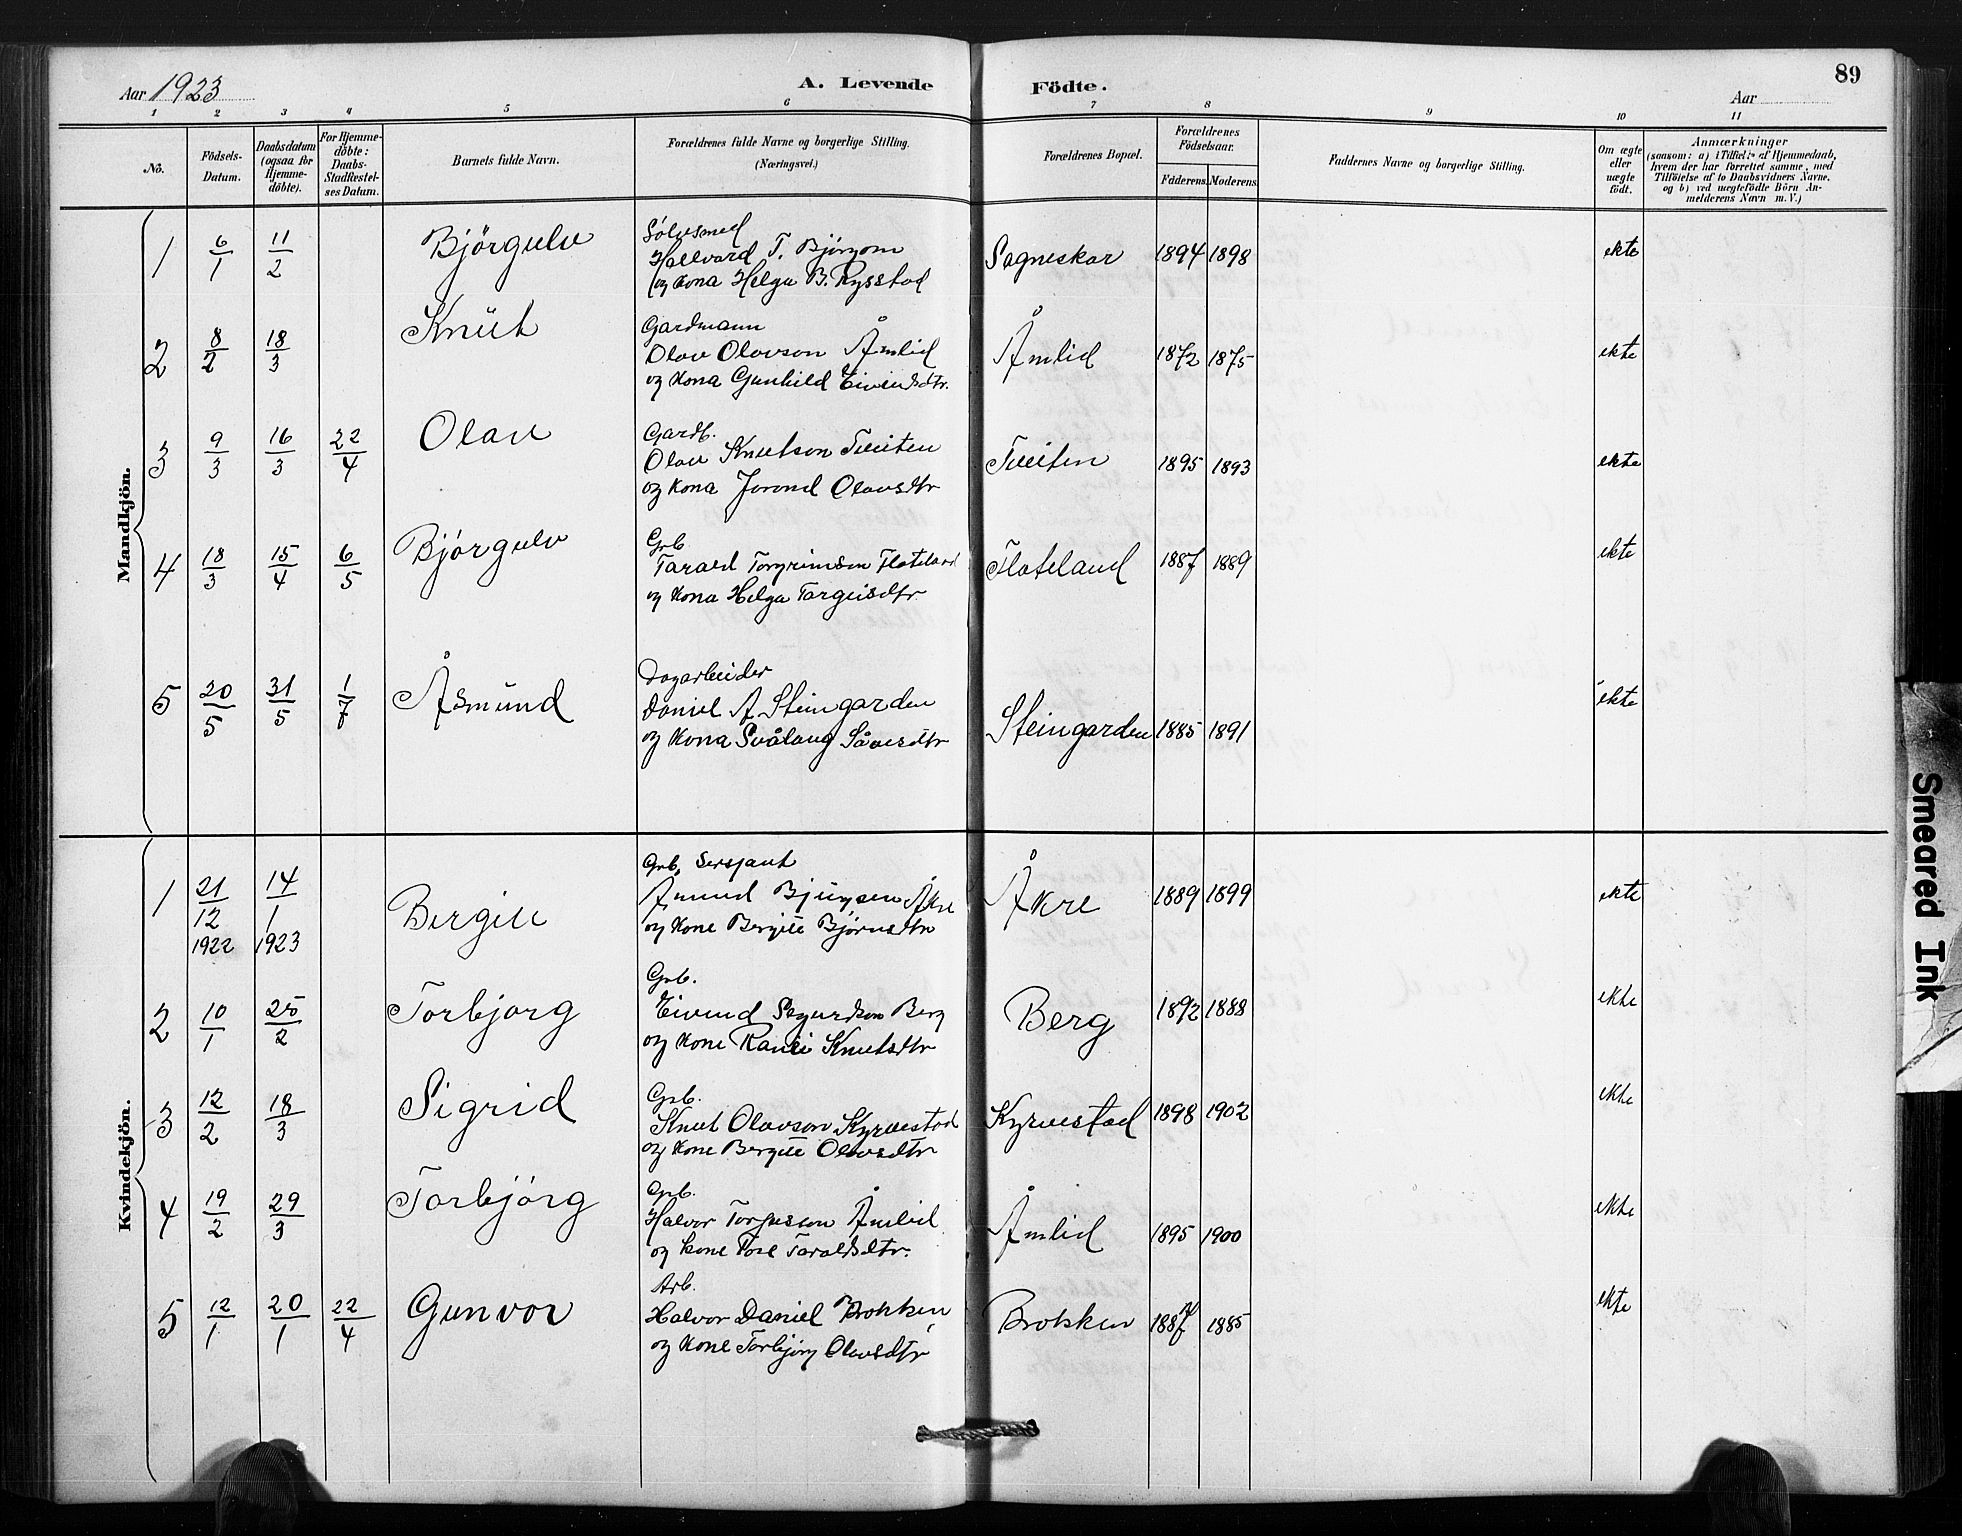 89
Aar 1923
A. Levende Födte.
Aar
1 2 3 4 5 6 7 8 9 10 11
No.
Födsels-Datum.
Daabsdatum (ogsaa for Hjemme-döbte).
For Hjemme-döbte: Daabs-Stadfæstel-ses Datum.
Barnets fulde Navn.
Forældrenes fulde Navne og borgerlige Stilling.
(Næringsvei.)
Forældrenes Bopæl.
Forældrenes Födselsaar.
Faderens. Moderens.
Faddernes Navne og borgerlige Stilling.
Om ægte eller uægte födt.
Anmærkninger
(saasom: a) i Tilfælde af Hjemmedaab,
hvem der har forrettet samme, med
Tilföielse af to Daabsvidners Navne,
og b) ved uægtefödte Börn An-
melderens Navn m.V.)
Mandkjön.
1 6/1 11/2 Bjørgulv
Sølvsmed
Hallvard T. Bjørgom
og kona Helga B. Rysstad
Sagneskar 1894 1898 ekte
2 8/2 18/3 Knut
Gardmann
Olav Olavson Åmlid
og kona Gunhild Eivindsdtr.
Åmlid 1872 1875 ekte
3 9/3 16/3 22/4 Olav
Gardb.
Olav Knutson Tveiten
og kona Jorond Olavsdtr
Tveiten 1895 1893 ekte
4 18/3 15/4 6/5 Bjørgulv
Grb
Tarald Torgrimson Flateland
og kona Helga Targeisdtr
Flateland 1887 1889 ekte
5 20/5 31/5 1/7 Åsmund
Dagarbeider
Daniel A Steingarden
og kona Svålaug Såvesdtr
Steingarden 1885 1891 ekte
Kvindekjön.
1 21/12 1922 14/1 1923 Bergit
Grb, Sersjant
Åmund Bjurgsen Åkre
og kone Bergit Bjørnsdtr
Åkre 1889 1899 ekte
2 10/1 25/2 Torbjorg
Grb.
Eivind Sigurdson Berg
og kone Ranei Knutsdtr
Berg 1892 1888 ekte
3 12/2 18/3 Sigrid
Grb.
Knut Olavson Kyrvestad
og kone Bergit Olavsdtr
Kyrvestad 1898 1902 ekte
4 19/2 29/3 Torbjörg
Grb.
Halvor Torjusson Åmlid
og kone Tore Taraldsdtr.
Åmlid 1895 1900 ekte
5 12/1 20/1 22/4 Gunvor
Arb.
Halvor Daniel Brokken
og kone Torbjorg Olavsdtr
Brokken 1887 1885 ekte
Smeared Ink